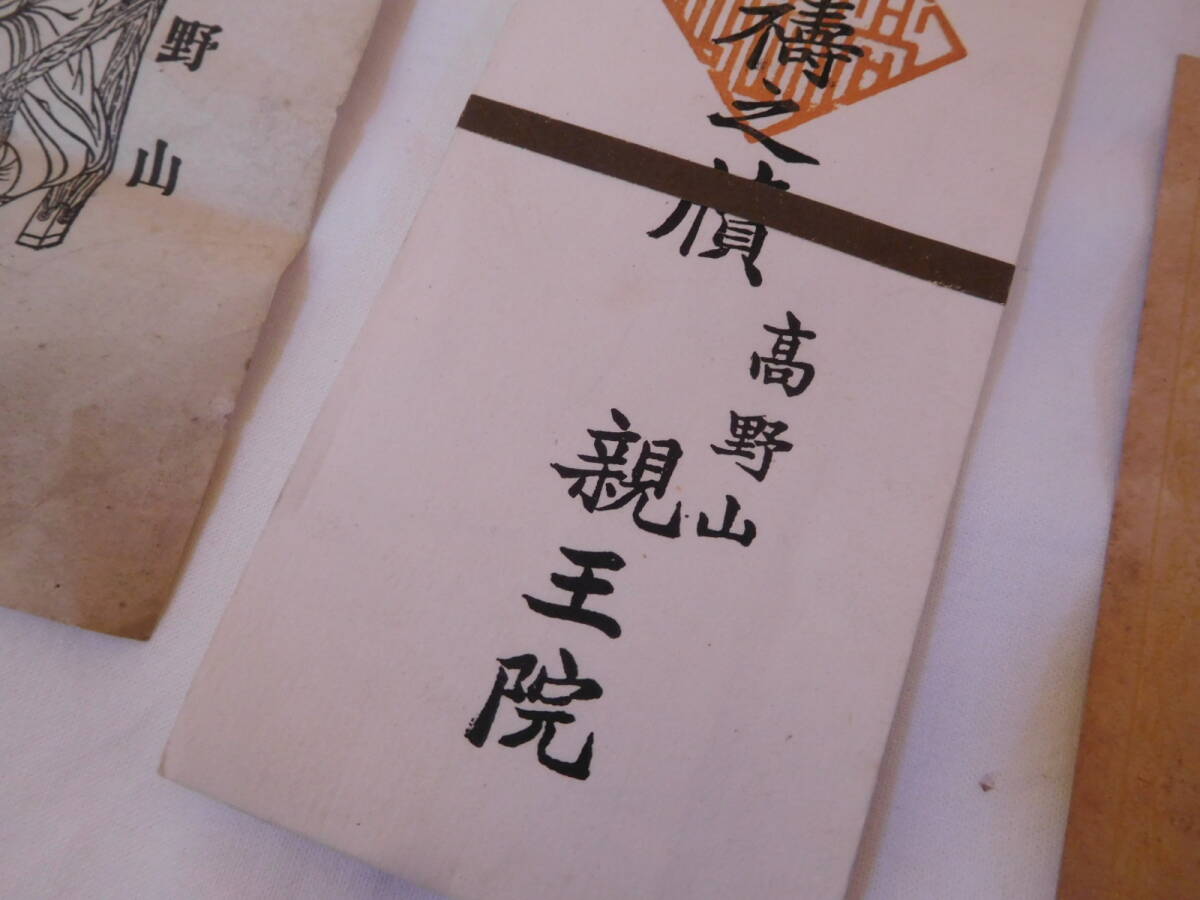 野山
禱之
高野山
親王院